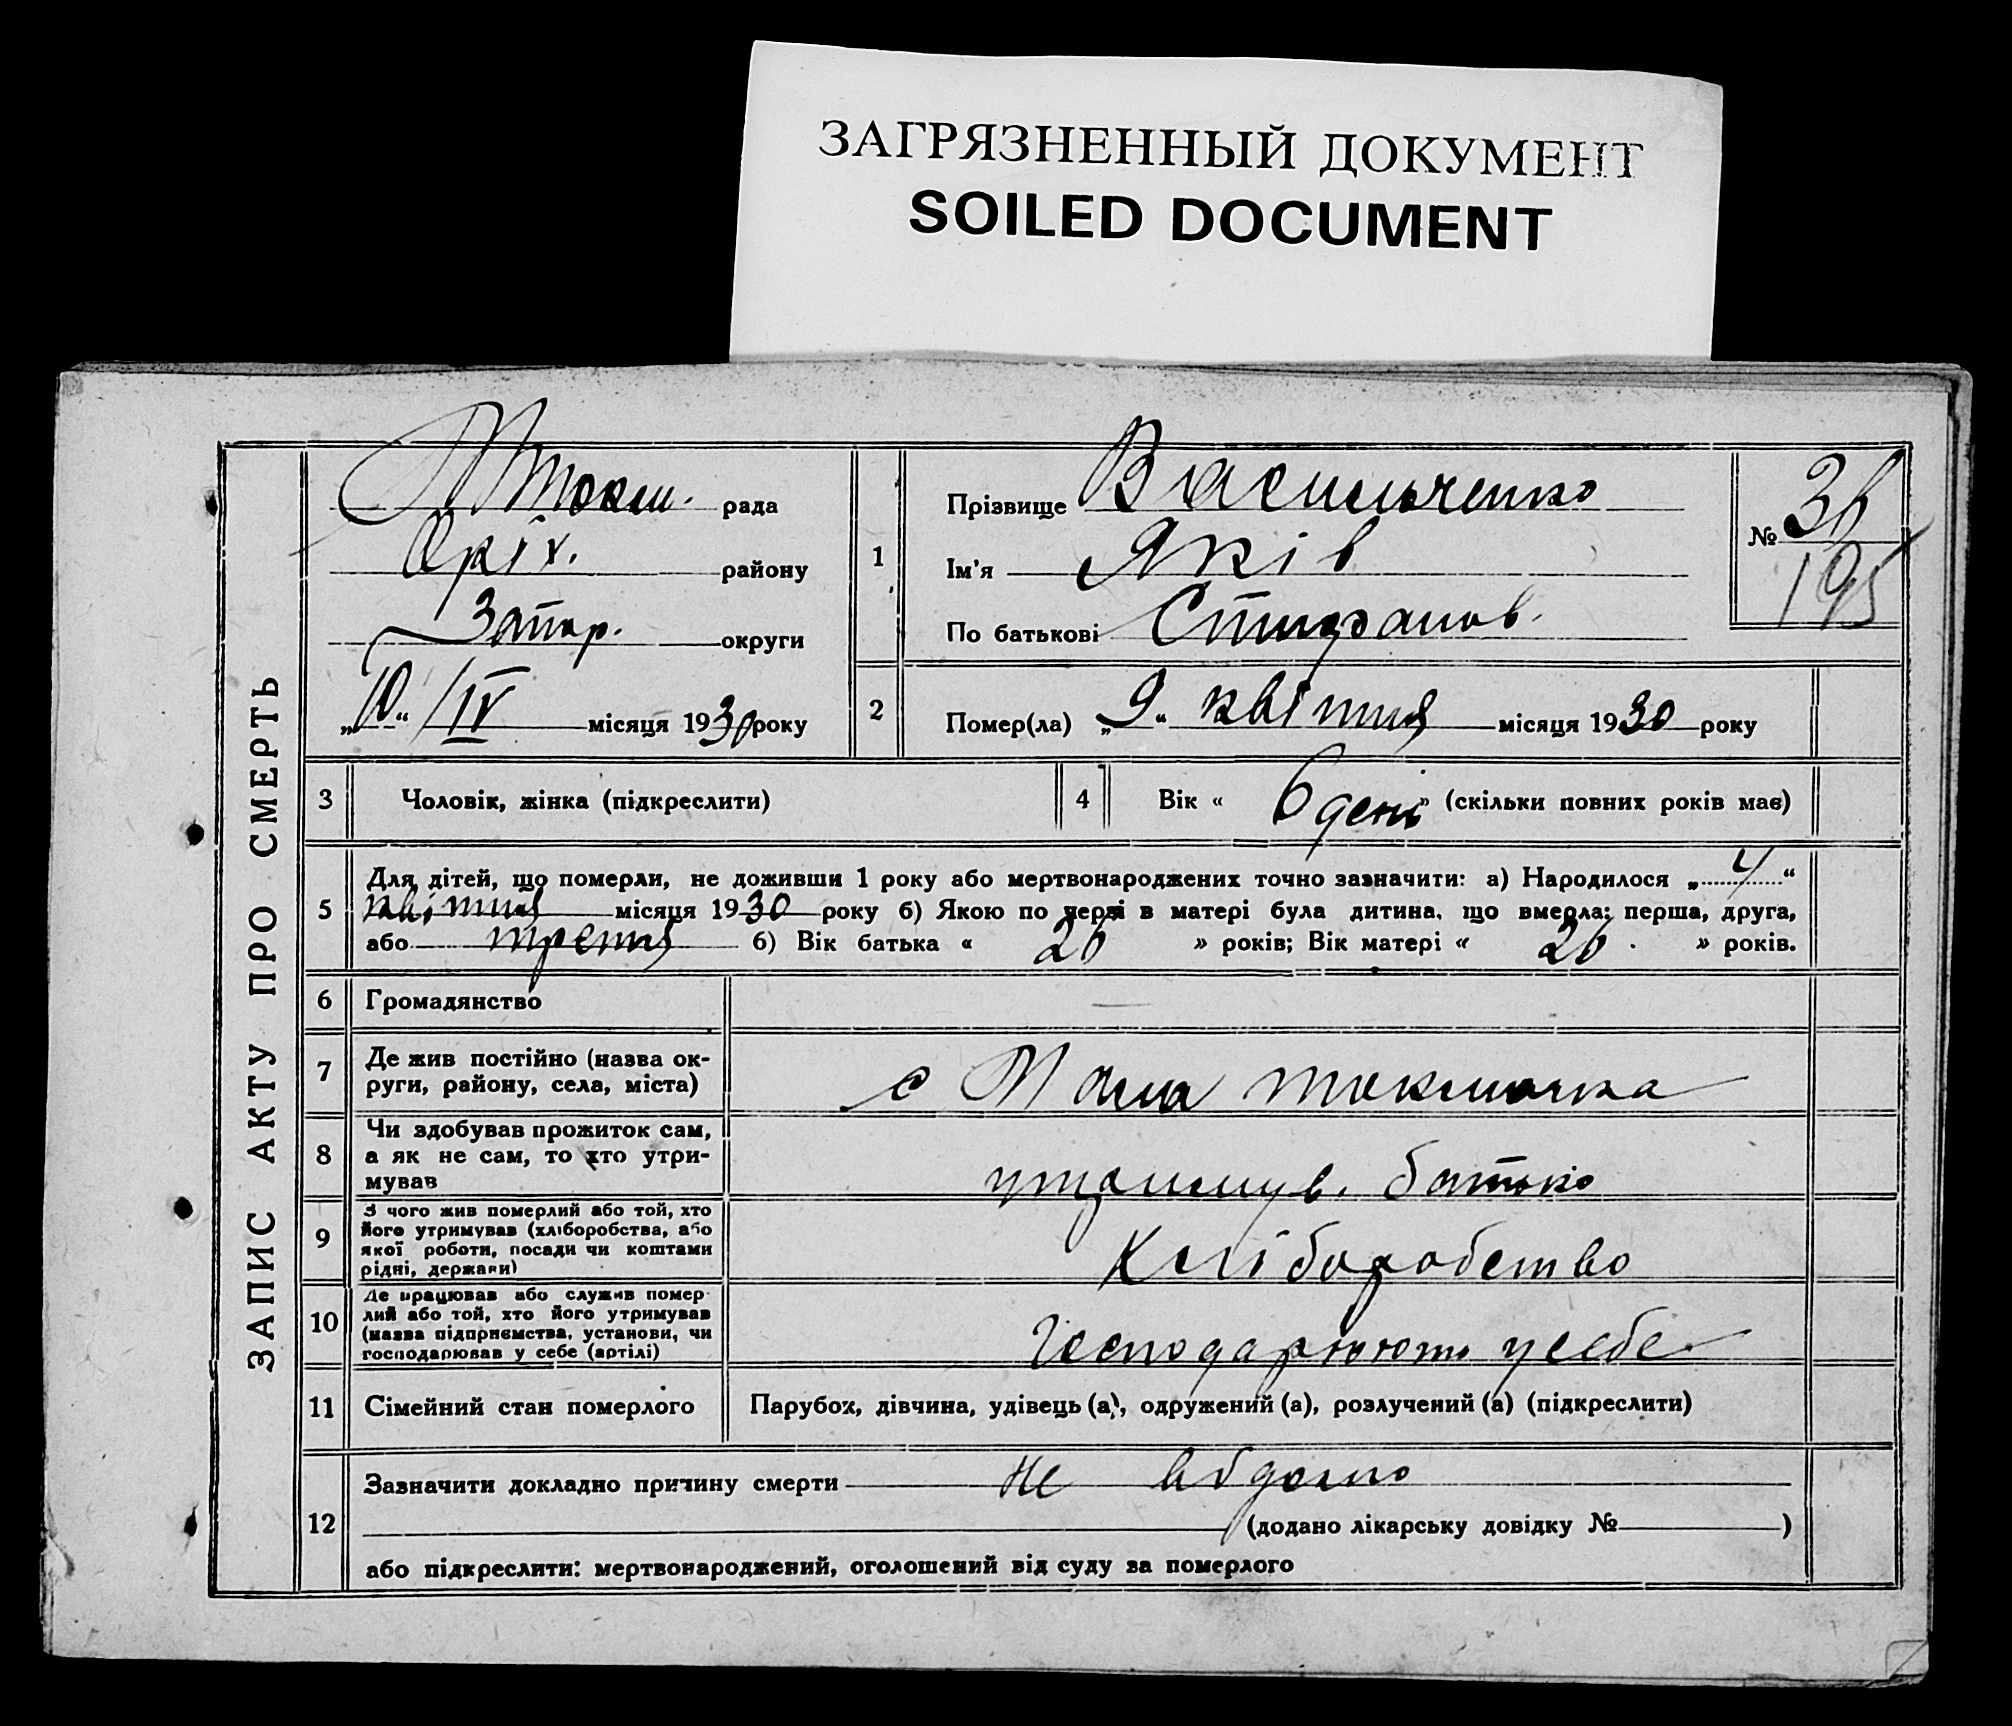 ЗАГРЯЗНЕННЫЙ ДОКУМЕНТ
SOILED DOCUMENT
ЗАПИС АКТУ ПРО СМЕРТЬ
М Токм. рада
Оріх. району
Запор. округи
„10“ /IV місяця 1930 року
1
Прізвище Васильченко
Ім'я Яків
По батькові Степанов.
№ 36
195
2
Помер(ла) „9“ квітня місяця 1930 року
3 Чоловік, жінка (підкреслити)
4 Вік « 6 день » (скільки повних років мав)
5
Для дітей, що померли, не доживши 1 року або мертвонароджених точно зазначити: а) Народилося „4“
квітня місяця 1930 року б) Якою по черзі в матері була дитина, що вмерла: перша, друга,
або третя б) Вік батька « 26 » років; Вік матері « 26 . » років.
6 Громадянство —
7 Де жив постійно (назва ок-
руги, району, села, міста)
с Мала токмачка
8 Чи здобував прожиток сам,
а як не сам, то хто утри-
мував
батько
9 З чого жив померлий або той, хто
його утримував (хліборобства, або
якої роботи, посади чи коштами
рідні, держави)
Хліборобство
10 Де працював або служив помер-
лий або той, хто його утримував
(назва підприємства, установи, чи
господарював у себе (артілі)
Господарюють у себе
11 Сімейний стан померлого
Парубох, дівчина, удівець (а), одружений (а), розлучений (а) (підкреслити)
12
Зазначити докладно причину смерти не відомо
(додано лікарську довідку № )
або підкреслити: мертвонароджений, оголошений від суду за померлого